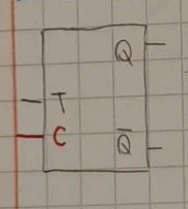 Q
T
C
Q̅